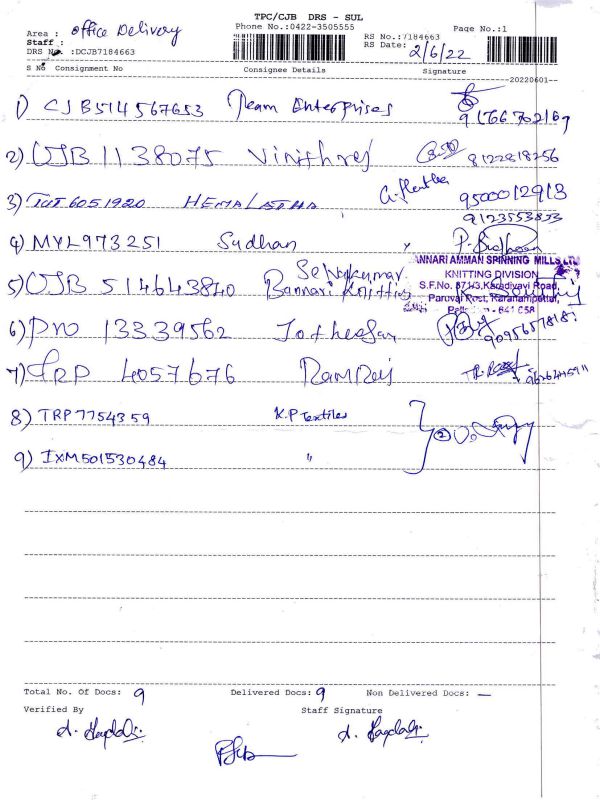 TPC/CJB DRS - SUL
Phone No.:0422-3505555
Area : office Delivery
Staff :
DRS No. :DCJB7184663
RS No.:7184663
RS Date: 2/6/22
Page No.:1
S No Consignment No Consignee Details Signature
20220601--
1) CJB514567653 Team Enterprises
2) CJB 1138075 Vinithraj 8122818256
3) TUT6051920 HEMALATHA 9500012913
9123553833
4) MYL973251 Sudhan
5) CJB 514643840 Selvakumar
Bannari Knitting
ANNARI AMMAN SPINNING MILLS LTD
KNITTING DIVISION
S.F.No. 371/3, Karadivavi Road,
Paruvai Post, Karanampettai,
- 641 658
6) PNO 13339562
7) TRP 4057676 Ramraj
8) TRP7754359 K.P Textiles
9) IXM501530484 "
Total No. Of Docs: 9 Delivered Docs: 9 Non Delivered Docs: —
Verified By Staff Signature